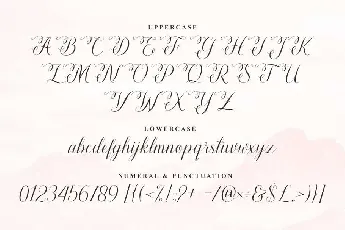 UPPERCASE
A B C D E F G H I J K
L M N O P Q R S T U
V W X Y Z
LOWERCASE
abcdefghijklmnopqrstuvwxyz
NUMERAL & PUNCTUATION
0123456789 [(<%!:?+-/@×=&$£.>)]